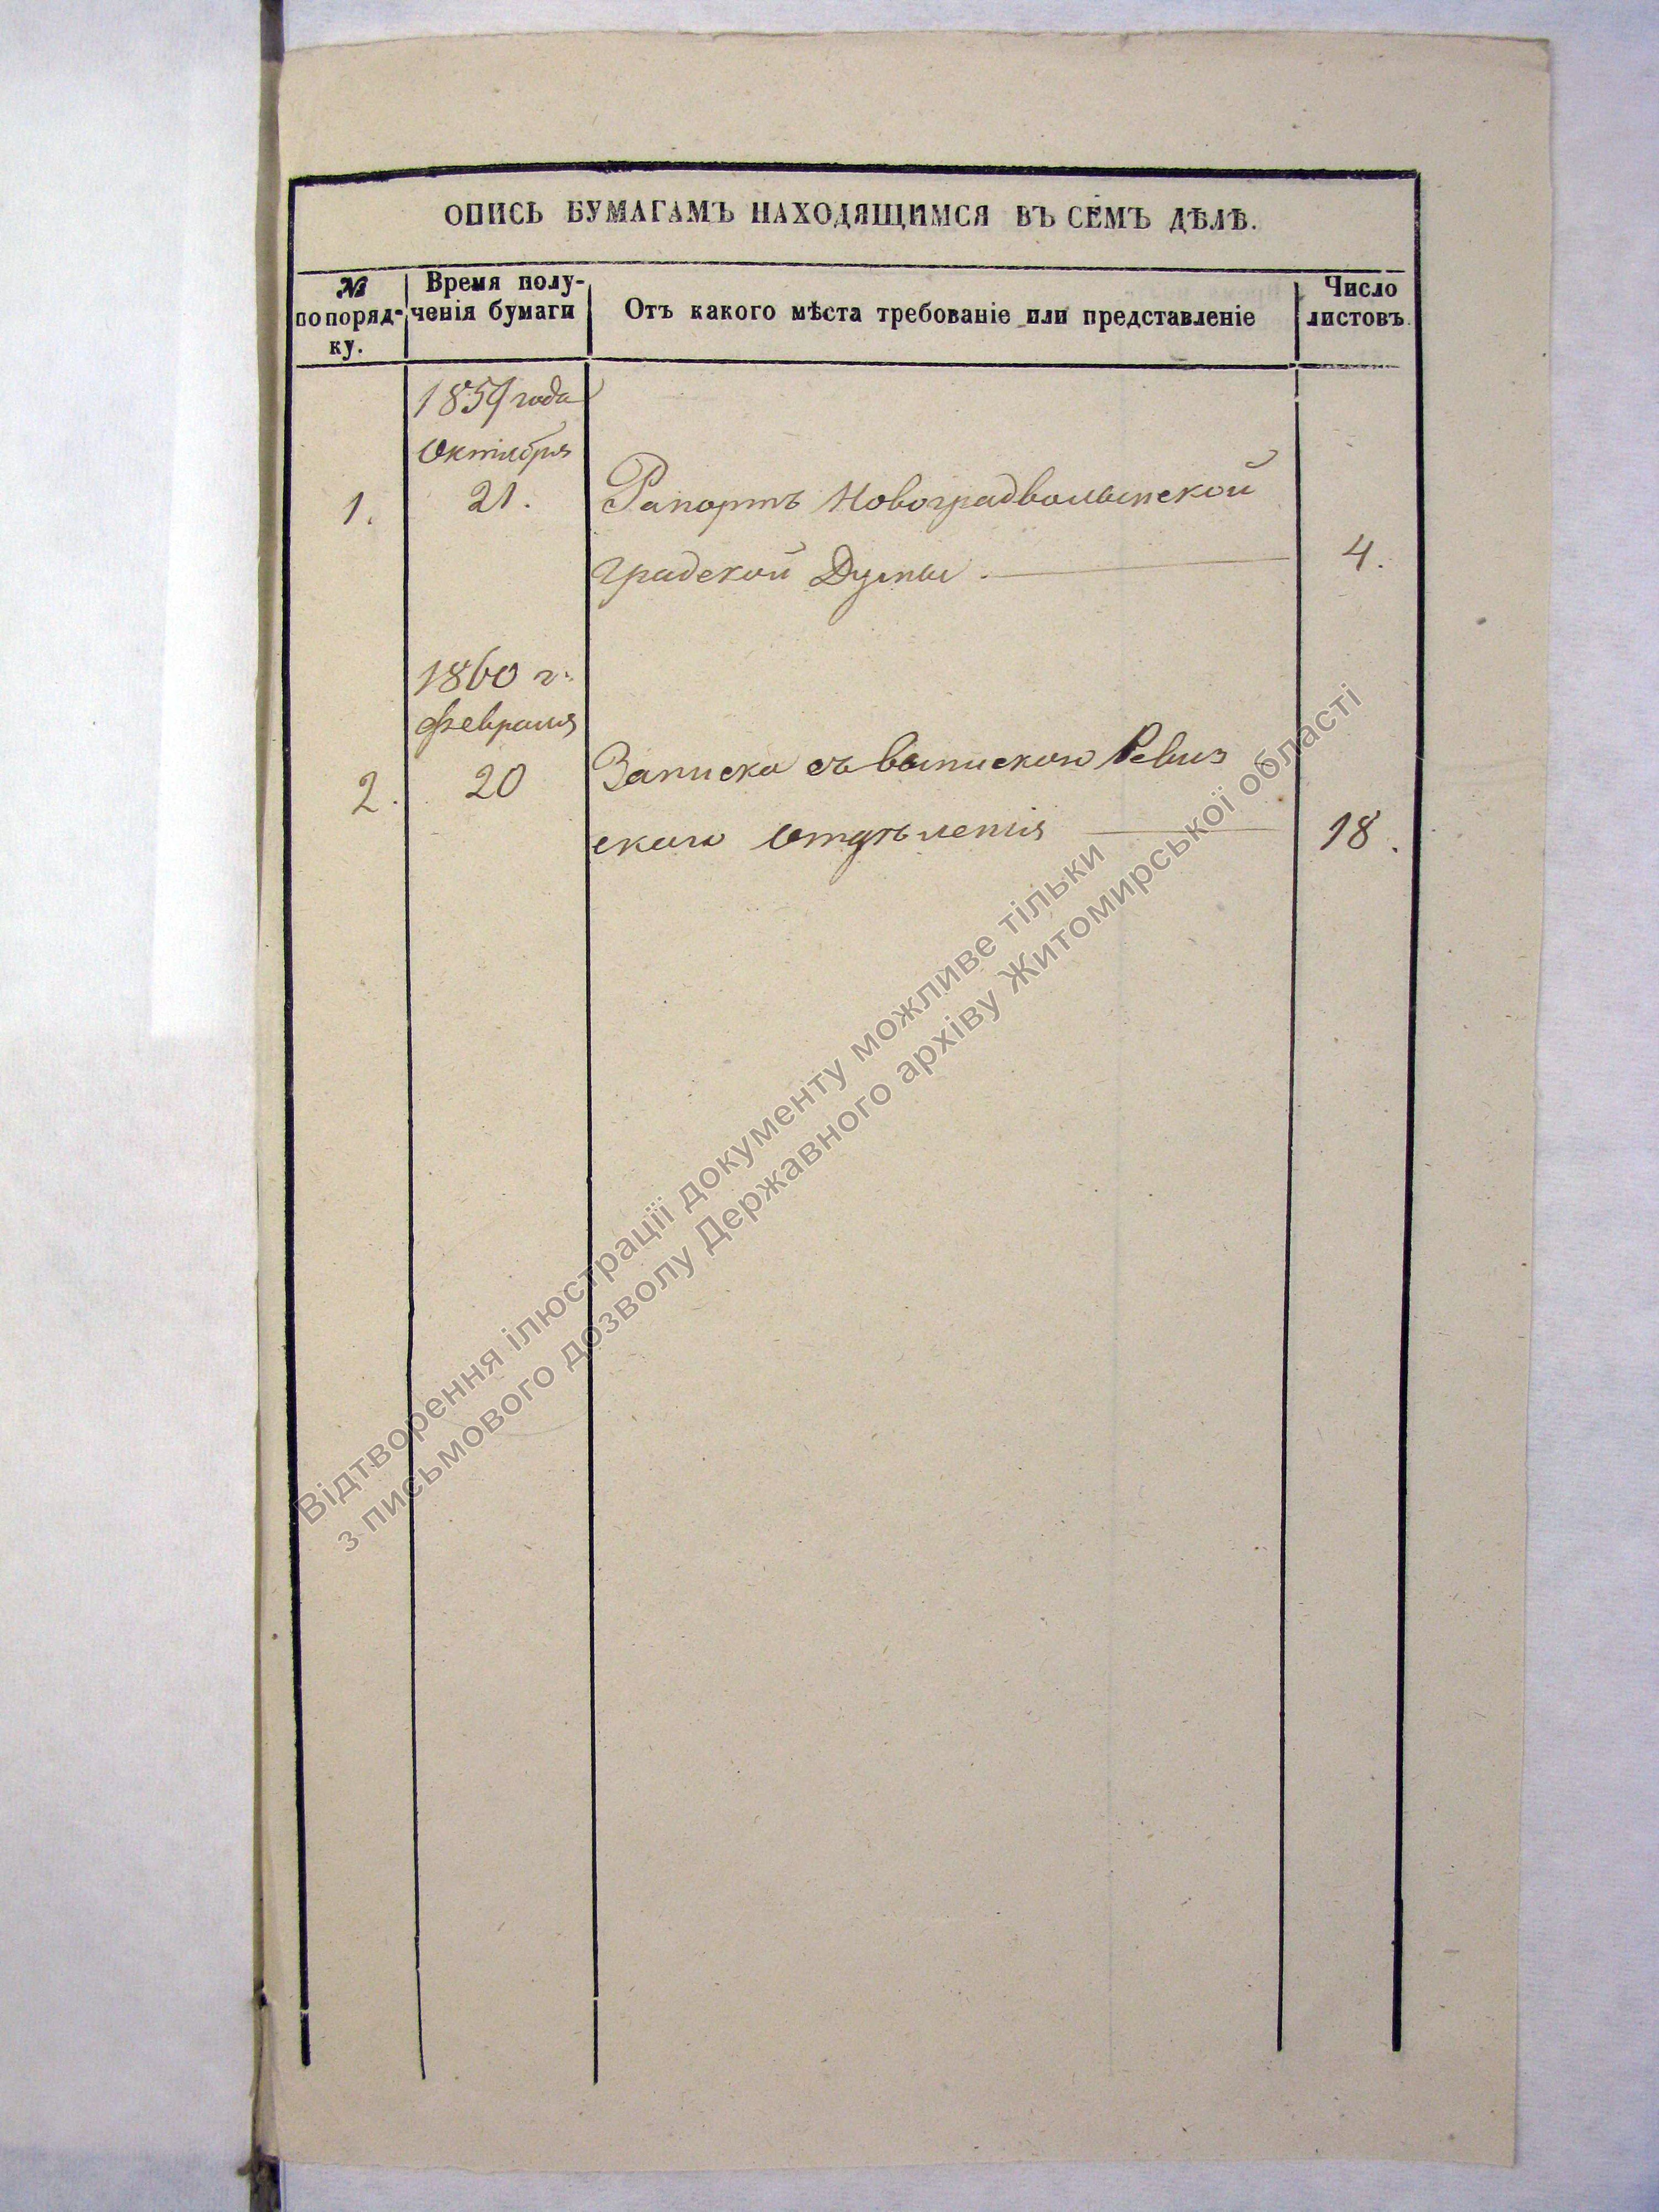 ОПИСЬ БУМАГАМЪ НАХОДЯЩИМСЯ ВЪ СЕМЪ ДѢЛѢ.
№ по поряд-ку.
Время полу-ченія бумаги
Отъ какого мѣста требованіе или представленіе
Число листовъ
1859 года
Октября
1.
21.
Рапортъ Новоградволынской
градской Думы.
4.
1860 г.
Февраля
2.
20
Записка съ выпискою Ревиз
скаго Отдѣленія
18.
Відтворення ілюстрації документу можливе тільки
з письмового дозволу Державного архіву Житомирської області